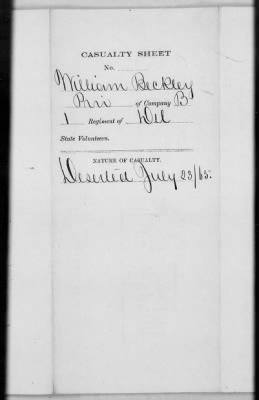 CASUALTY SHEET
No.
William Beckley
Priv of Company B
1 Regiment of Del
State Volunteers.
NATURE OF CASUALTY.
Deserted July 23/65.